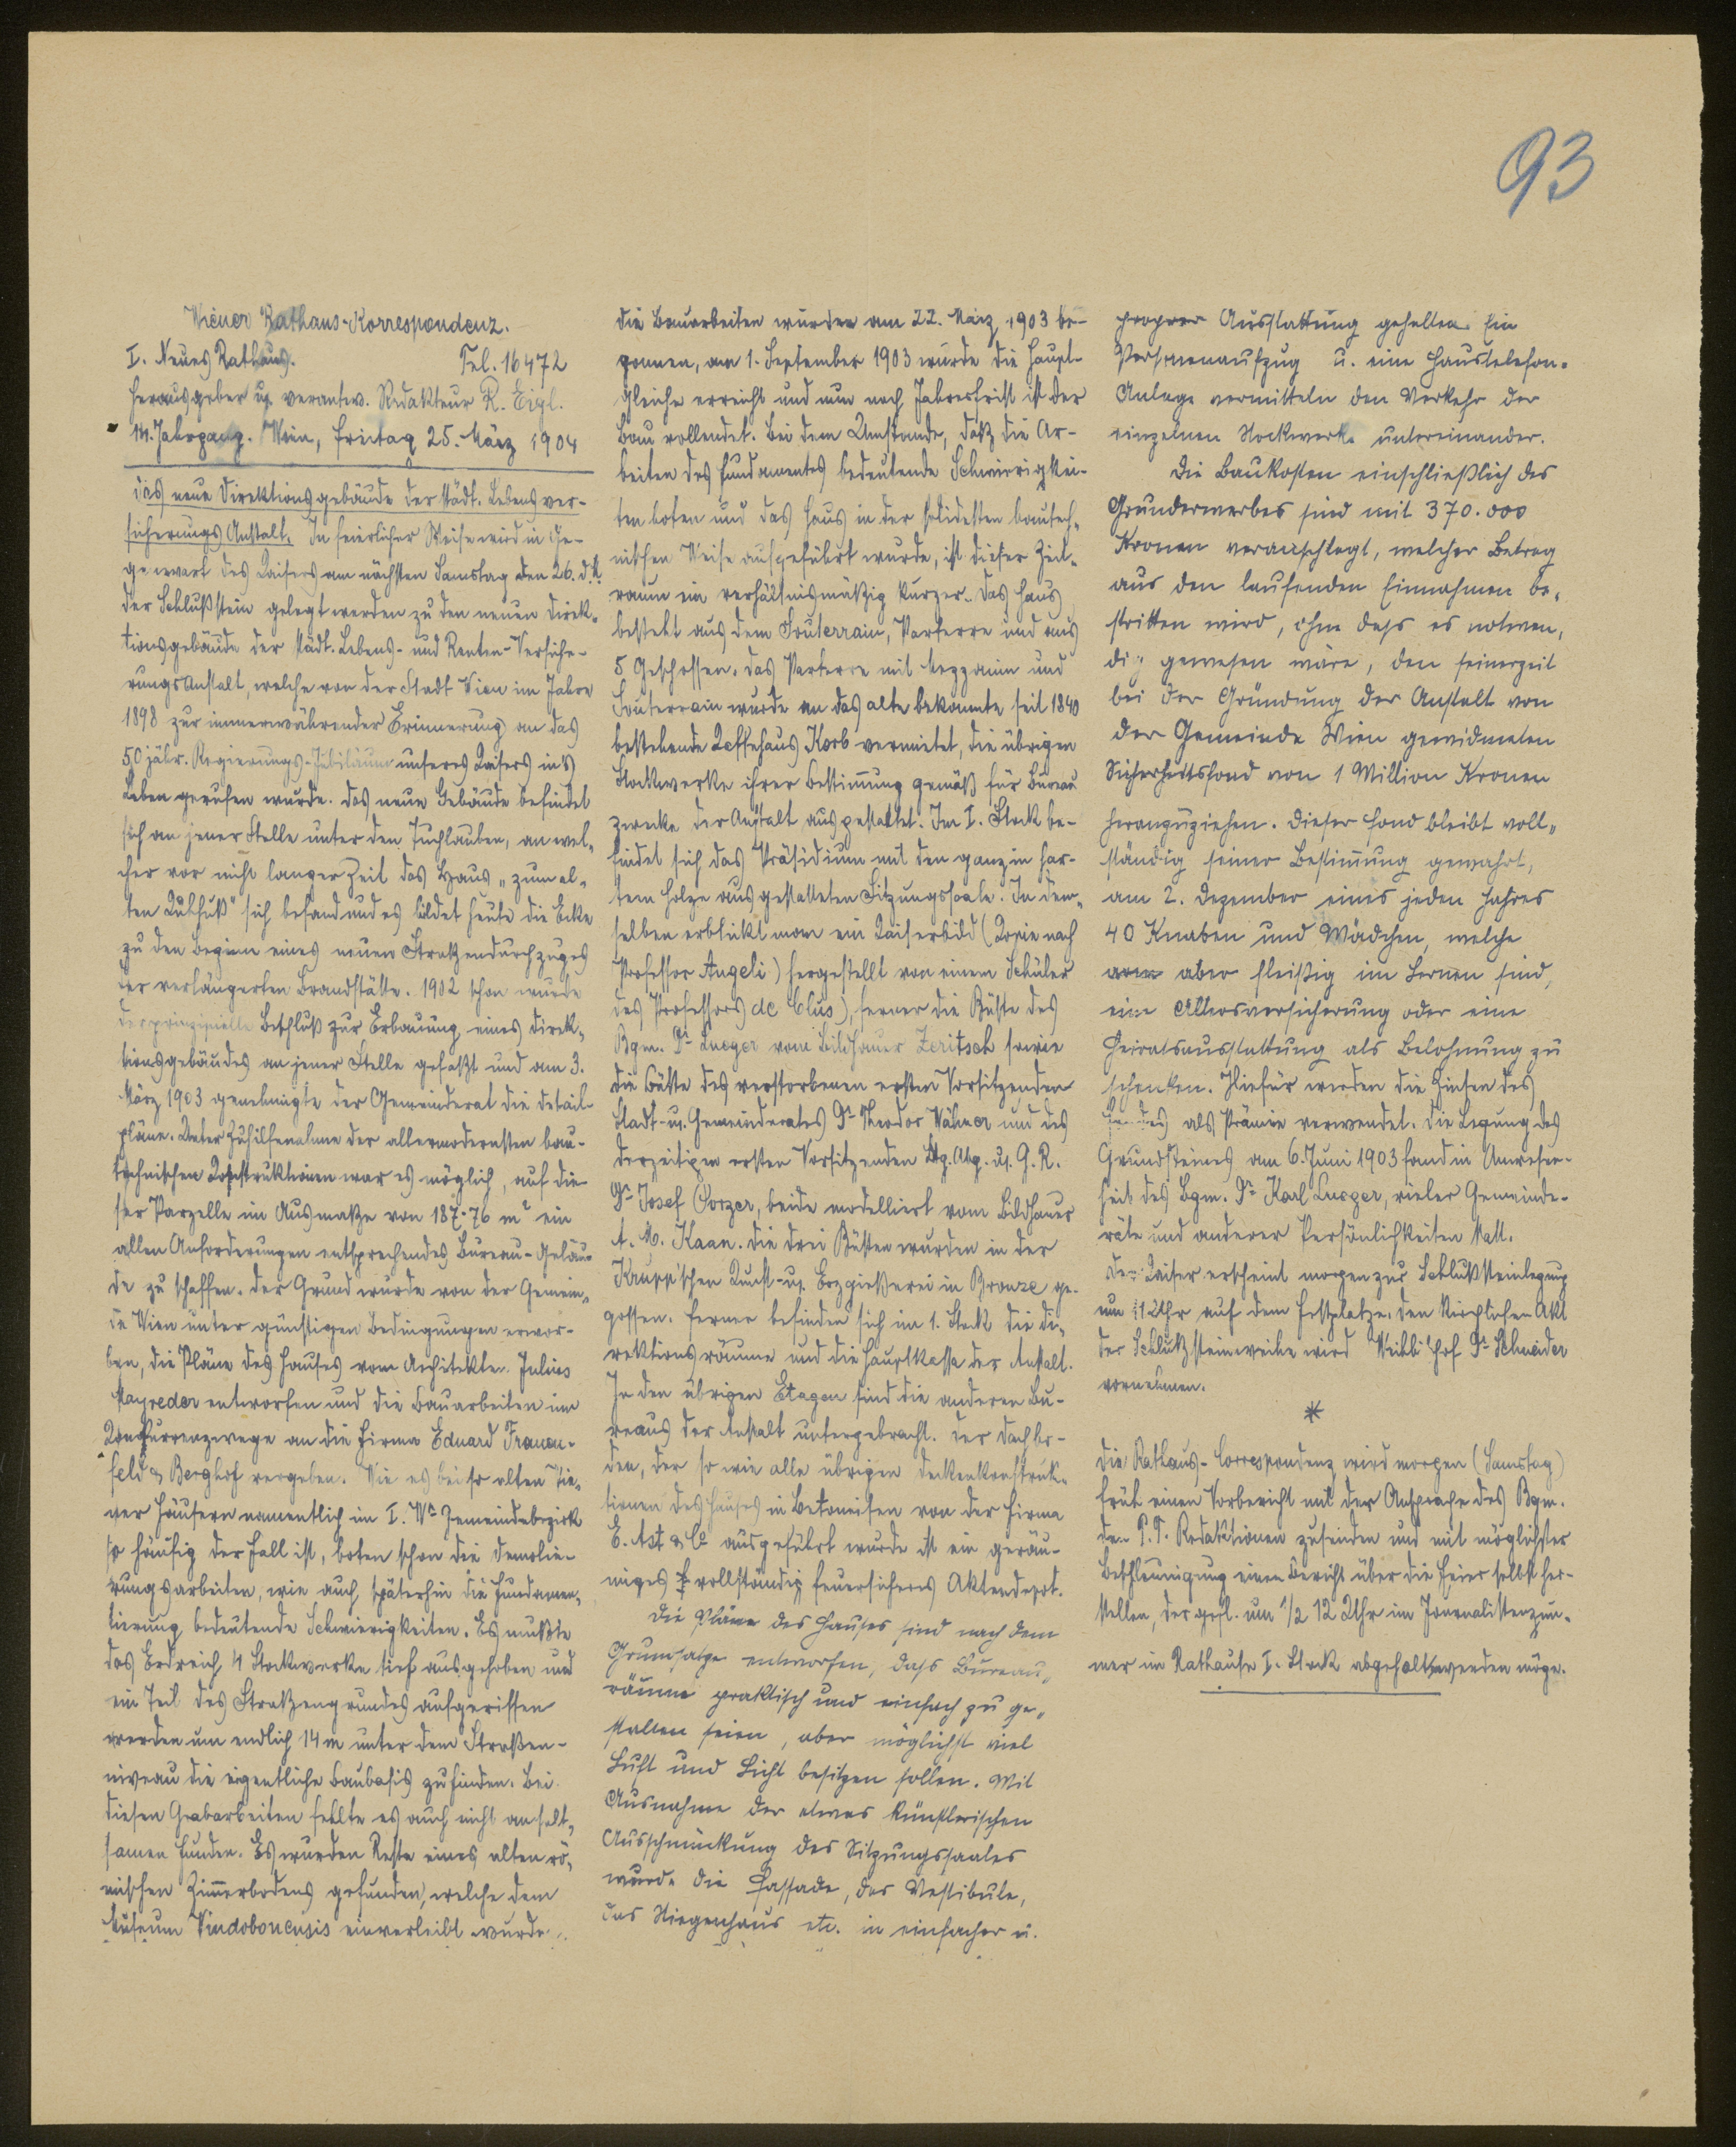 93
Wiener Rathaus-Korrespondenz.
I. Neues Rathaus. Tel. 16472
Herausgeber u. verantw. Redakteur R. Eigl.
14. Jahrgang. Wien, Freitag 25. März 1904
Das neue Direktionsgebäude der städt. Lebensver-
sicherungs Anstalt. In feierlicher Weise wird in Ge-
genwart des Kaisers am nächsten Samstag den 26. d. M.
der Schlußstein gelegt werden zu den neuen Direk-
tionsgebäude der städt. Lebens- und Renten-Versiche-
rungs Anstalt, welche von der Stadt Wien im Jahre
1898 zur immerwährender Erinnerung an das
50 jähr. Regierungs-Jubiläum unseres Kaisers in's
Leben gerufen wurde. Das neue Gebäude befindet
sich an jener Stelle unter den Tuchlauben, an wel-
cher vor nicht langer Zeit das Haus „zum al-
ten Kühfuß" sich befand und es bildet heute die Ecke
zu den Beginn eines neuen Straßendurchzuges
der verlängerten Brandstätte. 1902 schon wurde
der prinzipielle Beschluß zur Erbauung eines Direk-
tionsgebäudes an jener Stelle gefaßt und am 3.
März 1903 genehmigte der Gemeinderat die Detail-
pläne. Unter Zuhilfenahme der allermodernsten bau-
technischen Konstruktionen war es möglich, auf die-
ser Parzelle im Ausmaße von 187·76 m² ein
allen Anforderungen entsprechendes Bureau-Gebäu-
de zu schaffen. Der Grund wurde von der Gemein-
de Wien unter günstigen Bedingungen erwor-
ben, die Pläne des Hauses vom Architekten Julius
Mayreder entworfen und die Bauarbeiten im
Konkurrenzwege an die Firma Eduard Frauen-
feld & Berghof vergeben. Wie es bei so alten Wie-
ner Häusern namentlich im I. Wr Gemeindebezirk
so häufig der Fall ist, boten schon die Demolie-
rungsarbeiten, wie auch späterhin die Fundamen-
tierung bedeutende Schwierigkeiten. Es mußte
das Erdreich 4 Stockwerke tief ausgehoben und
ein Teil des Straßengrundes aufgerissen
werden um endlich 14 m unter dem Straßen-
niveau die eigentliche Baubasis zu finden. Bei
diesen Grabarbeiten fehlte es auch nicht an selt-
samen Funden. Es wurden Reste eines alten rö-
mischen Zimmerbodens gefunden, welche dem
Museum Vindobonensis einverleibt wurden.
Die Bauarbeiten wurden am 22. März 1903 be-
gonnen, am 1. September 1903 wurde die Haupt-
gleiche erreicht und nun nach Jahresfrist ist der
Bau vollendet. Bei dem Umstande, daß die Ar-
beiten des Fundamentes bedeutende Schwierigkei-
ten boten und das Haus in der solidesten bautech-
nischen Weise ausgeführt wurde, ist dieser Zeit-
raum ein verhältnismäßig kurzer. Das Haus
besteht aus dem Souterrain, Parterre und aus
5 Geschossen. Das Parterre mit Mezzanin und
Souterrain wurde an das alte bekannte seit 1840
bestehende Kaffehaus Korb vermietet, die übrigen
Stockwerke ihrer Bestimmung gemäß für Bureau
zwecke der Anstalt ausgestaltet. Im I. Stock be-
findet sich das Präsidium mit den ganz in har-
tem Holze ausgestatteten Sitzungssaale. In dem-
selben erblickt man ein Kaiserbild (Kopie nach
Professor Angeli) hergestellt von einem Schüler
des Professors de Clus), ferner die Büste des
Bgm. Dr Lueger vom Bildhauer Zeritsch sowie
die Büste des verstorbenen ersten Vorsitzenden
Stadt- u. Gemeinderates Dr Theodor Wähner und des
derzeitigen ersten Vorsitzenden Ltg. Abg. u. G. R.
Dr Josef Porzer, beide modelliert vom Bildhauer
A. M. Kaan. Die drei Büsten wurden in der
Krupp'schen Kunst- u. Erzgießerei in Bronze ge-
gossen. Ferner befinden sich im 1. Stock die Di-
rektionsräume und die Hauptkassa der Anstalt.
In den übrigen Etagen sind die anderen Bu-
reaus der Anstalt untergebracht. Der Dachbo-
den, der so wie alle übrigen Deckenkonstruk-
tionen des Hauses in Betoneisen von der Firma
E. Ast & Co ausgeführt wurde ist ein geräu-
miges vollständig feuersicheres Aktendepot.
Die Pläne des Hauses sind nach dem
Grundsatze entworfen, dass Bureau-
räume praktisch und einfach zu ge-
stalten seien, aber möglichst viel
Luft und Licht besitzen sollen. Mit
Ausnahme der etwas künstlerischen
Ausschmückung des Sitzungssaales
wurde die Fassade, das Vestibule,
das Stiegenhaus etc. in einfacher u.
proprer Ausstattung gehalten. Ein
Personenaufzug u. eine Haustelefon-
Anlage vermitteln den Verkehr der
einzelnen Stockwerke untereinander.
Die Baukosten einschließlich des
Grunderwerbes sind mit 370.000
Kronen veranschlagt, welcher Betrag
aus den laufenden Einnahmen be-
stritten wird, ohne dass es notwen-
dig gewesen wäre, den seinerzeit
bei der Gründung der Anstalt von
der Gemeinde Wien gewidmeten
Sicherheitsfond von 1 Million Kronen
heranzuziehen. Dieser Fond bleibt voll-
ständig seiner Bestimmung gewahrt,
am 2. Dezember eines jeden Jahres
40 Knaben und Mädchen, welche
arm aber fleißig im Lernen sind,
eine Altersversicherung oder eine
Heiratsausstattung als Belohnung zu
schenken. Hiefür werden die Zinsen des
Fondes als Prämie verwendet. Die Legung des
Grundsteines am 6. Juni 1903 fand in Anwesen-
heit des Bgm. Dr Karl Lueger, vieler Gemeinde-
räte und anderer Persönlichkeiten statt.
Der Kaiser erscheint morgen zur Schlußsteinlegung
um 11 Uhr auf dem Festplatze. Den kirchlichen Akt
der Schlußsteinweihe wird Weihbischof Dr Schneider
vornehmen.
*
Die Rathaus-Correspondenz wird morgen (Samstag)
früh einen Vorbericht mit der Ansprache des Bgm.
den P. T. Redaktionen zusenden und mit möglichster
Beschleunigung einen Bericht über die Feier selbst her-
stellen, der gefl. um ½ 12 Uhr im Journalistenzim-
mer im Rathause I. Stock abgeholt werden möge.